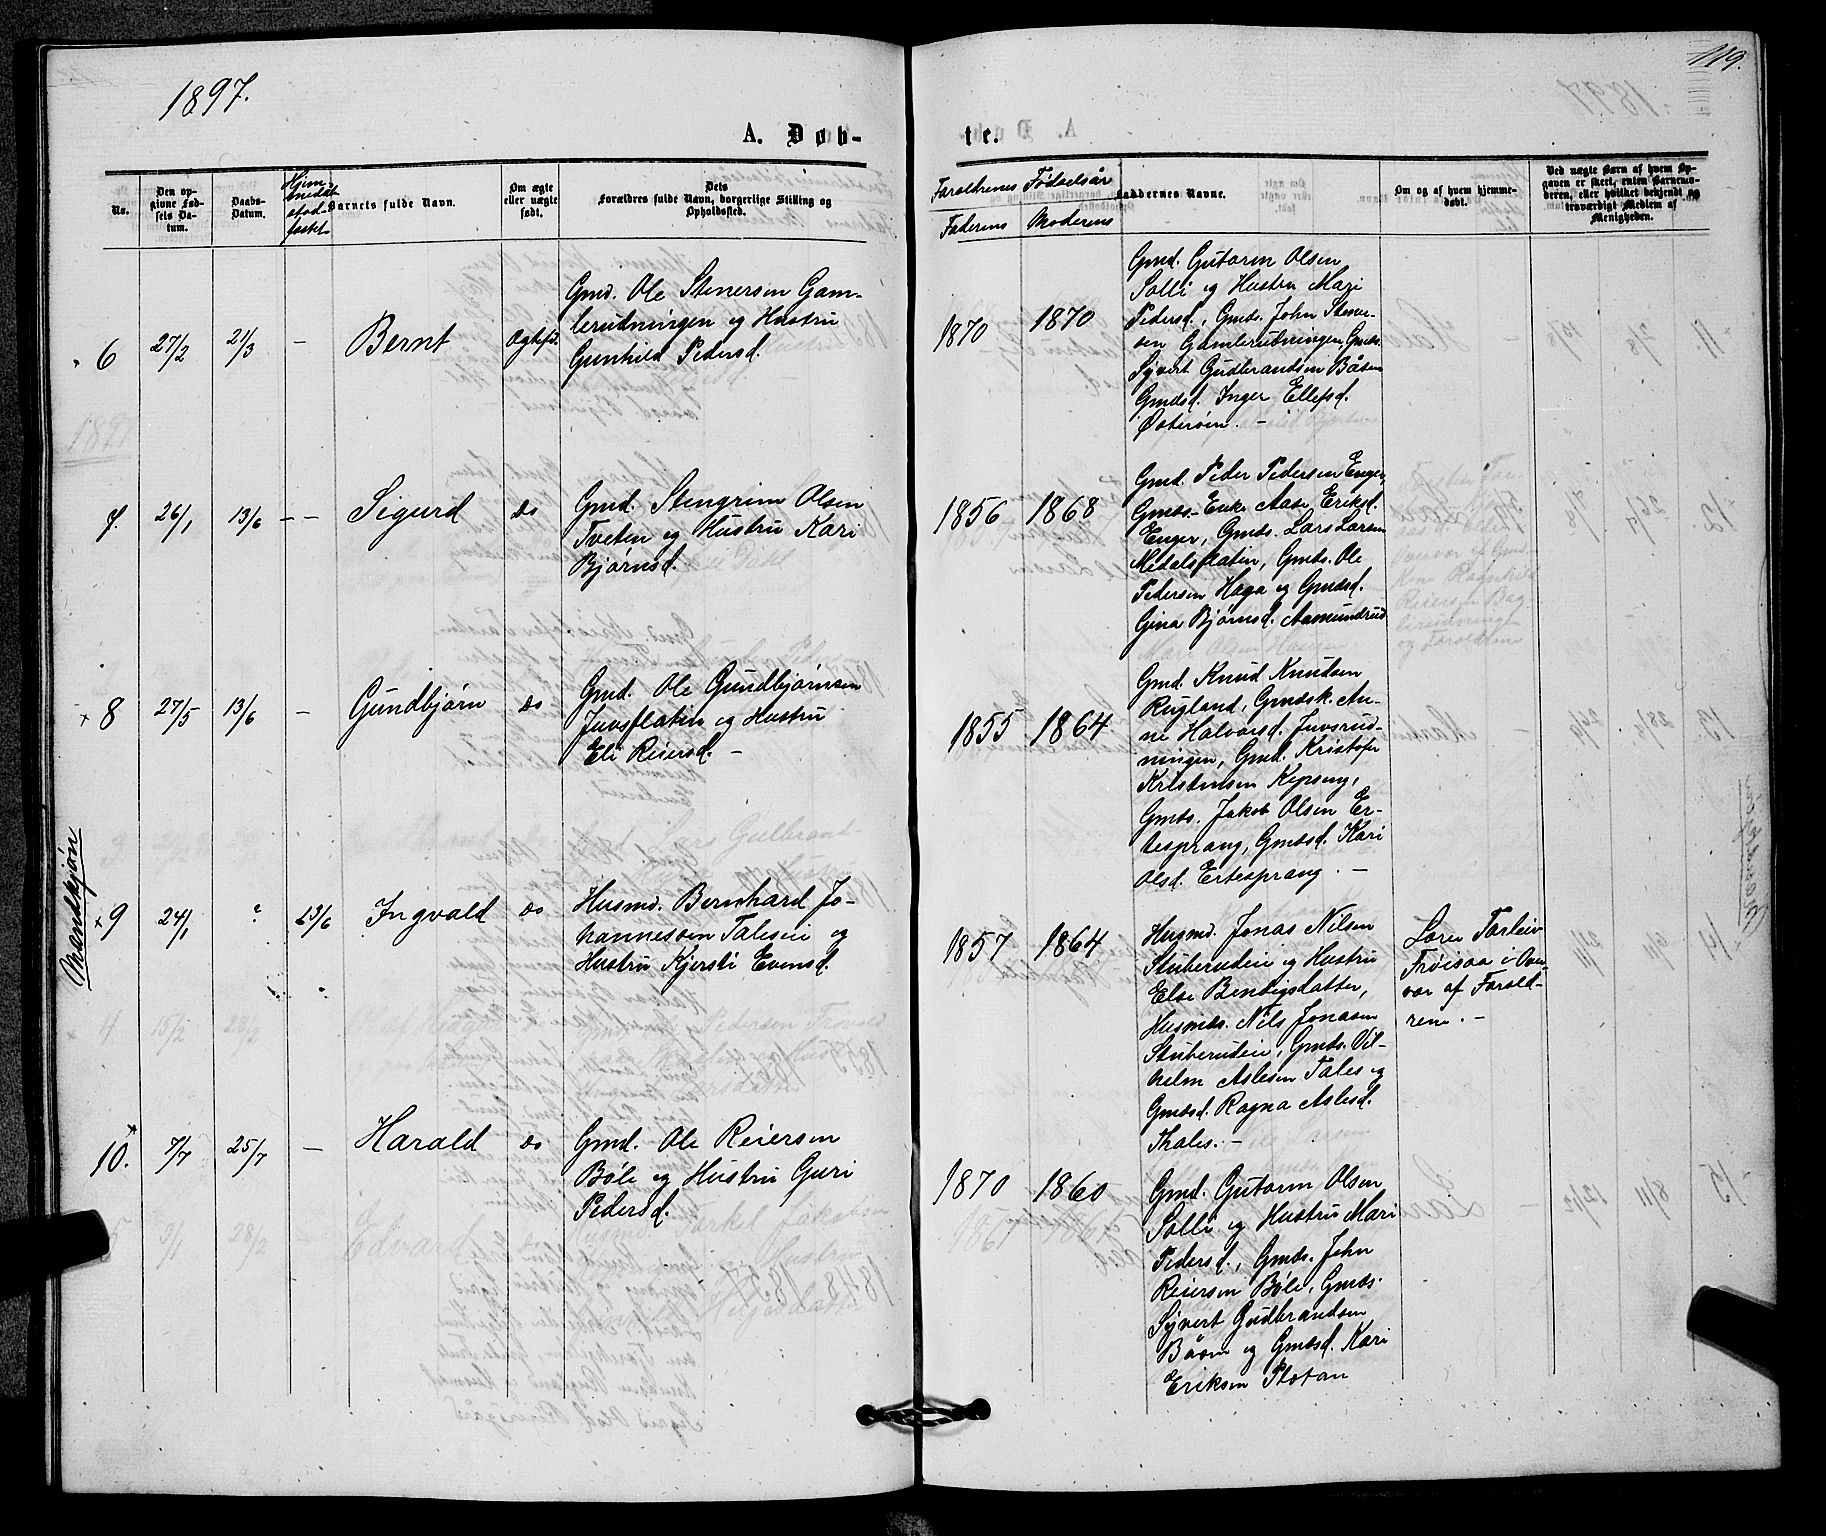 1897.
119.
A. Døb-
te.
No.
Den op-
givne Fød-
sels Da-
tum.
Daabs-
Datum.
Hjem-
medåb
stad-
fæstet
Barnets fulde Navn.
Om ægte
eller uægte
født.
Dets
Forældres fulde Navn, borgerlige Stilling og
Opholdssted.
Forældrenes Fødselsår
Faderens
Moderens
Faddernes Navne.
Om og af hvem hjemme-
døbt.
Ved uægte Barn af hvem Op-
gaven er skeet, enten Barnemo-
deren, eller hvilket bekjendt og
troværdigt Medlem af
Menigheden.
Mandkjøn
6
27/2
21/3
–
Bernt
Ægtefd.
Gmd. Ole Stenersen Gam-
lerudningen og Hustru
Gunhild Pedersd.
1870
1870
Gmd. Gutorm Olsen
Solli og Hustru Mari
Pedersd., Gmds. John Stener-
sen Gamlerudningen, Gmds.
Syvert Gudbrandsen Båsen
Gmdsd. Inger Ellefsd.
Østerøin. –
7.
26/1
13/6
– –
Sigurd
do
Gmd. Stengrim Olsen
Tveten og Hustru Kari
Bjørnsd.
1856
1868
Gmd. Peder Pedersen Enger,
Gmds-Enke Aase Eriksd.
Enger, Gmds. Lars Larsen
Medalsflatin, Gmds. Ole
Pedersen Haga og Gmdsd.
Gina Bjørnsd. Aasmundrud
8
27/5
13/6
–
Gundbjørn
do
Gmd. Ole Gundbjørnsen
Juvsflatin og Hustru
Eli Reiersd. –
1855
1864
Gmd. Knud Knudsen
Rugland, Gmdsk. An-
ne Halvorsd. Juvsrud-
ningen, Gmd. Kristofer
Kristensen
Gmds. Jakob Olsen Er-
tesprang, Gmdsd. Kari
Olsd. Ertesprang. –
9
24/1
?
13/6
Ingvald
do
Husmd. Bernhard Jo-
hannessen Taleseie og
Hustru Kjersti Evensd.
1857
1864
Husmd. Jonas Nilsen
Stuberudeie og Hustru
Else Bendigsdatter,
Husmds. Nils Jonasen
Stuberudeie, Gmds. Vil-
helm Aslesen Tales og
Gmdsd. Ragna Aslesd.
Thales. –
Lærer Torleiv
Trøisaa i Over-
vær af Foræld-
rene. –
10.
7/7
25/7
–
Harald
do
Gmd. Ole Reiersen
Bøle og Hustru Guri
Pedersd.
1870
1860
Gmd. Gutorm Olsen
Solli og Hustru Mari
Pedersd., Gmds. John
Reiersen Bøle, Gmds.
Syvert Gudbrandsen
Båsen og Gmdsd. Kari
Eriksen Plotan